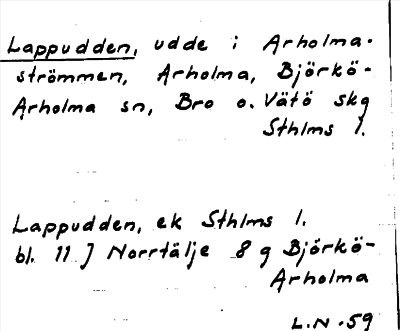 Lappudden, udde i Arholma-
strömmen, Arholma, Björkö-
Arholma sn, Bro o. Vätö skg
Sthlms l.
Lappudden, ek Sthlms l.
bl. 11 J Norrtälje 8 g Björkö-
Arholma
L.N.59